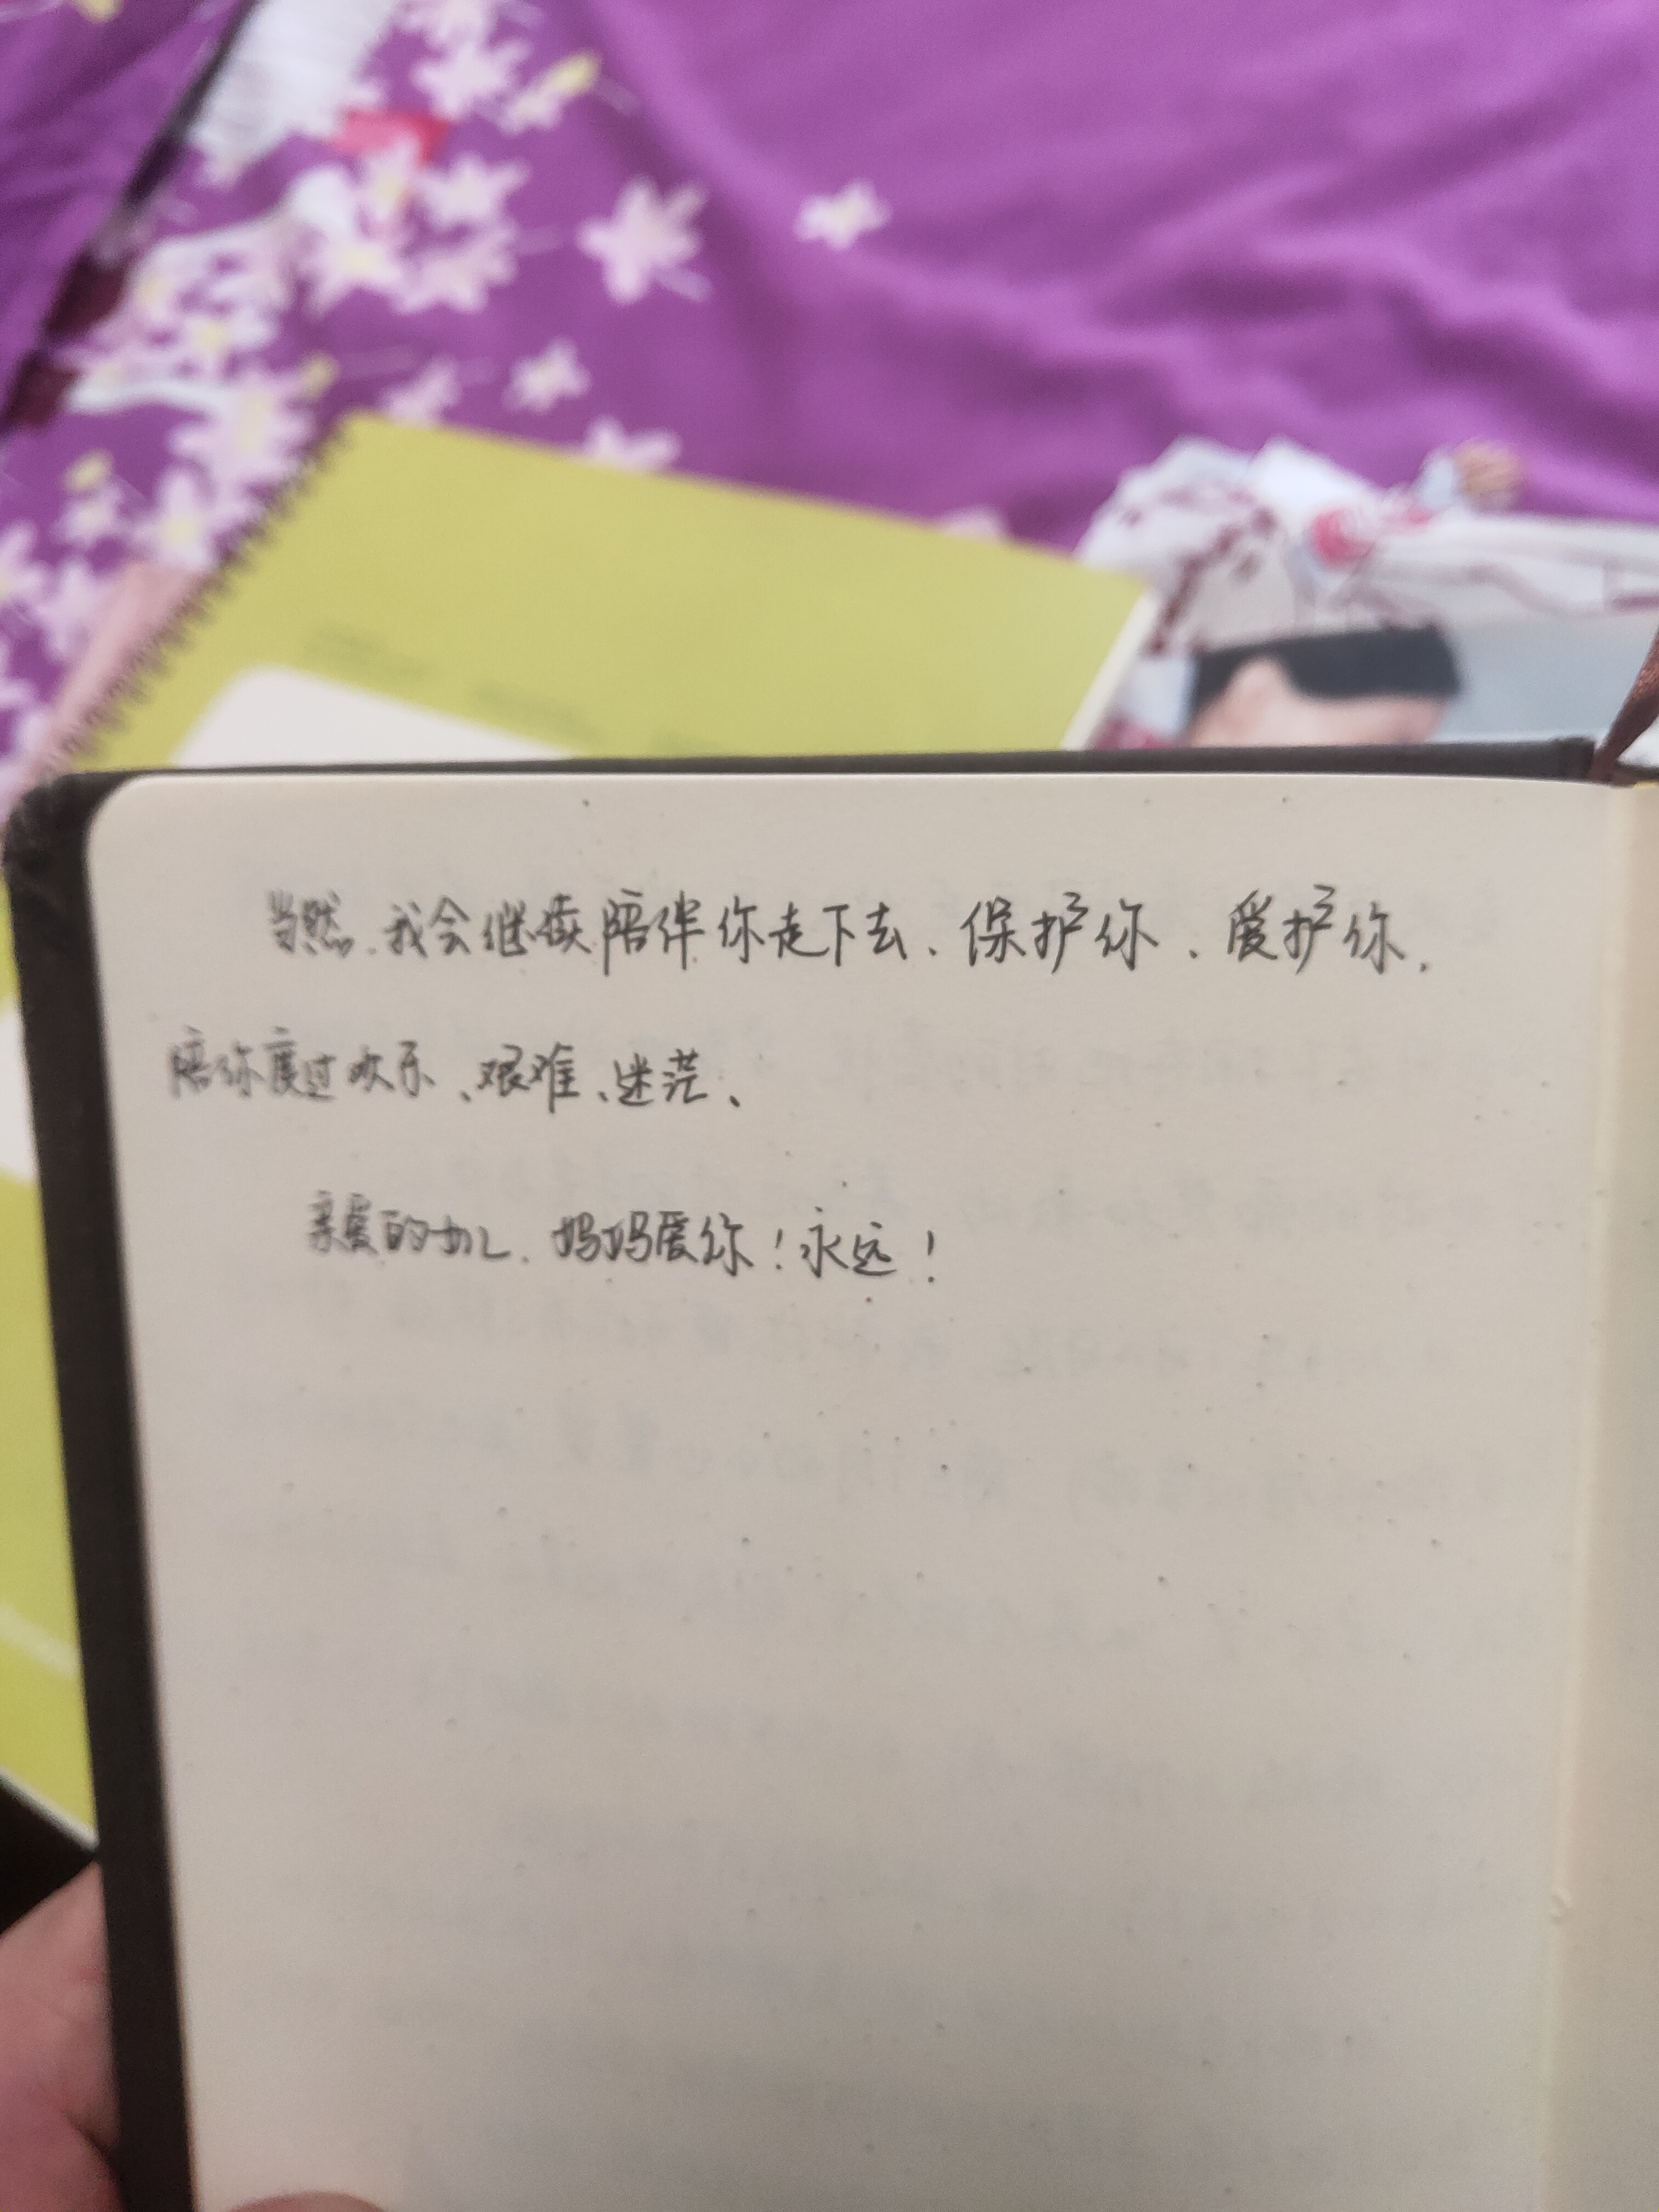 当然、我会继续陪伴你走下去、保护你、爱护你、
陪你度过欢乐、艰难、迷茫、
亲爱的女儿、妈妈爱你！永远！